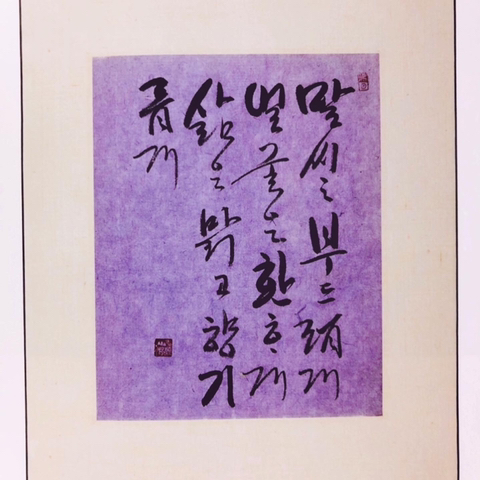 말씨는 부드럽게
얼굴은 환하게
삶은 맑고 향기
롭게